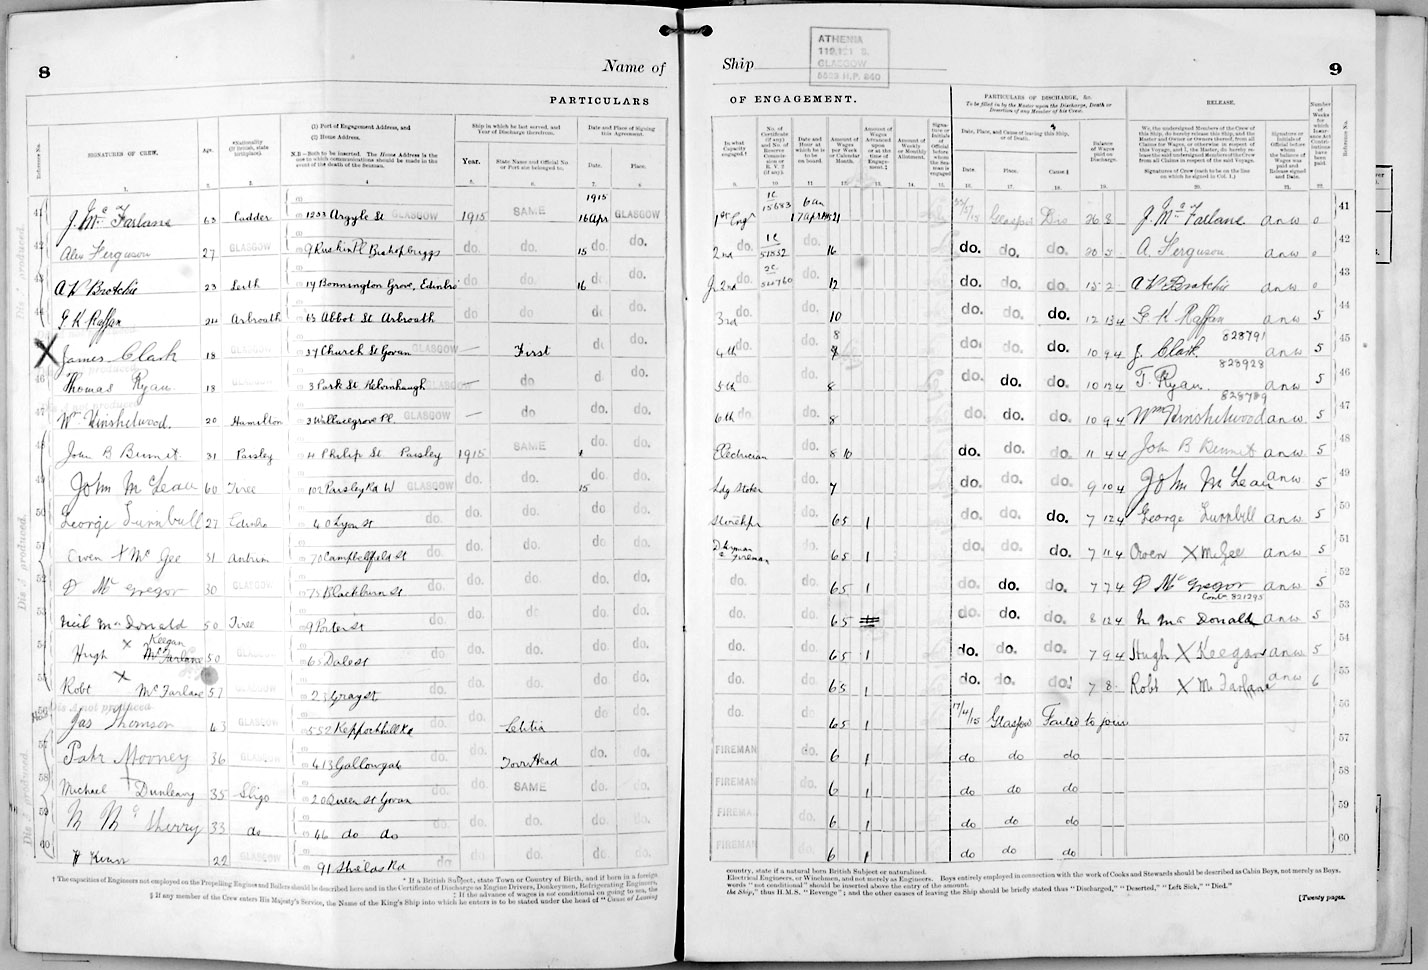 8
Name of
Ship
ATHENIA
119,121 S.
GLASGOW
5523 H.P. 840
9
PARTICULARS
OF ENGAGEMENT.
Reference No.
SIGNATURES OF CREW.
Age.
Nationality (If British, state birthplace).
(1) Port of Engagement Address, and
(2) Home Address.
N.B.—Both to be inserted. The Home Address is the one to which communications should be made in the event of the death of the Seaman.
Ship in which he last served, and Year of Discharge therefrom.
Year.
State Name and Official No. or Port she belonged to.
Date and Place of Signing this Agreement.
Date.
Place.
In what Capacity engaged.†
Date and Hour at which he is to be on board.
Amount of Wages per Week or Calendar Month.
Amount of Wages Advanced upon or at the time of Engagement.‡
Amount of Weekly or Monthly Allotment.
PARTICULARS OF DISCHARGE, &c.
To be filled in by the Master upon the Discharge, Death or Desertion of any Member of his Crew.
Date, Place, and Cause of leaving this Ship, or of Death.
Date.
Place.
Cause §
Balance of Wages paid on Discharge.
RELEASE.
We, the undersigned Members of the Crew of this Ship, do hereby release this Ship, and the Master and Owner or Owners thereof, from all Claims for Wages, or otherwise in respect of this Voyage, and I, the Master, do hereby release the undersigned Members of the Crew from all Claims in respect of the said Voyage.
Signatures of Crew (each to be on the line on which he signed in Col. 1.)
Reference No.
41 J. McFarlane 63 Cadder 1233 Argyle St GLASGOW 1915 SAME 1915 16 Apr GLASGOW 1st Engr 1C 15683 6 am 17 Apr 1915 21 Glasgow Dis J. McFallane anw 0 41
42 Alex Ferguson 27 GLASGOW 9 Ruskin Pl Bishopbriggs do. do. 15 do. 2nd do. 1C 16 do. do. do. A. Ferguson anw 0 42
43 A W Brotchie 23 Leith 14 Bonnington Grove, Edinbro' do. do. 16 do. J 2nd 2C 12 do. do. do. 15 2 A W Brotchie anw 0 43
44 G K Raffan 24 Arbroath 15 Abbot St Arbroath do do do. 3rd 10 do. do. do. 12 13 4 G K Raffan anw 5 44
X James Clark 18 37 Church St Govan GLASGOW — First do do. 4th 8 do. do. do. 10 9 4 J. Clark 828791 anw 5 45
46 Thomas Ryan 18 GLASGOW 3 Park St Kelvinhaugh GLASGOW — do do. 5th 8 do. do. do. 10 12 4 T. Ryan 828928 anw 5 46
47 Wm Kinshelwood. 20 Hamilton 3 Wallacegrove Pl. GLASGOW — do do. do. 6th 8 do. do. do. 10 9 4 Wm Kinshelwood 828789 anw 5 47
48 John B Bennet 31 Paisley 4 Philip St Paisley 1915 SAME do. do. Electrician 8 10 do. do. do. 11 4 4 John B Bennet anw 5 48
49 John McLean 60 Tiree 102 Paisley Rd W GLASGOW do. do. 15 do. Ldg Stoker 7 do. do. do. 9 10 4 John McLean anw 5 49
50 George Turnbull 27 Edinbro 40 Lyon St do. do. do. do. do. Storekpr 6 5 1 do. do. do. 7 12 4 George Turnbull anw 5 50
51 Owen + McGee 51 Antrim 70 Campbellfield St do. do. do. do. do. Dkyman & Fireman 6 5 1 do. do. do. 7 11 4 Owen X McGee anw 5 51
52 D McGregor 30 GLASGOW 75 Blackburn St do. do. do. do. do. do. 6 5 1 do. do. do. 7 7 4 D McGregor Contn 821295 anw 5 52
53 Neil McDonald 50 Tiree 9 Porter St do. do. do. do. do. do. 6 5 do. do. do. 8 12 4 N McDonald anw 5 53
54 Hugh X Keegan McFarlane 50 GLASGOW 65 Dale St do. do. do. do. do. do. 6 5 1 do. do. do. 7 9 4 Hugh X Keegan anw 5 54
Robt X McFarlane 57 GLASGOW 25 Gray St do. do. do. do. do. do. 6 5 1 do. do. do. 7 8 Robt X McFarlane anw 6 55
Dis A not produced
56 Jas Thomson 43 GLASGOW 552 Keppochhill Rd do. Letitia do. do. do. 6 5 1 17/4/15 Glasgow Failed to join 56
57 Patk Mooney 36 GLASGOW 613 Gallowgate do. do. Torr Head do. do. FIREMAN do. 6 1 do do do 57
58 Michael Dunleavy 35 Sligo 20 Queen St Govan do. do. SAME do. do. FIREMAN do. 6 1 do do do 58
59 M McSherry 33 do 46 do do do. do. do. do. do. FIREMAN do. 6 1 do do do 59
60 22 GLASGOW 91 Shields Rd do do. do. do. do. FIREMAN do. 6 1 do do do 60
† The capacities of Engineers not employed on the Propelling Engines and Boilers should be described here and in the Certificate of Discharge as Engine Drivers, Donkeymen, Refrigerating Engineers,
* If a British Subject, state Town or Country of Birth, and if born in a foreign
‡ If the advance of wages is not conditional on going to sea, the
§ If any member of the Crew enters His Majesty's Service, the Name of the King's Ship into which he enters is to be stated under the head of "Cause of Leaving
country, state if a natural born British Subject or naturalized.
Electrical Engineers, or Winchmen, and not merely as Engineers. Boys entirely employed in connection with the work of Cooks and Stewards should be described as Cabin Boys, not merely as Boys.
words "not conditional" should be inserted above the entry of the amount.
the Ship," thus H.M.S. "Revenge"; and the other causes of leaving the Ship should be briefly stated thus "Discharged," "Deserted," "Left Sick," "Died."
[Twenty pages.